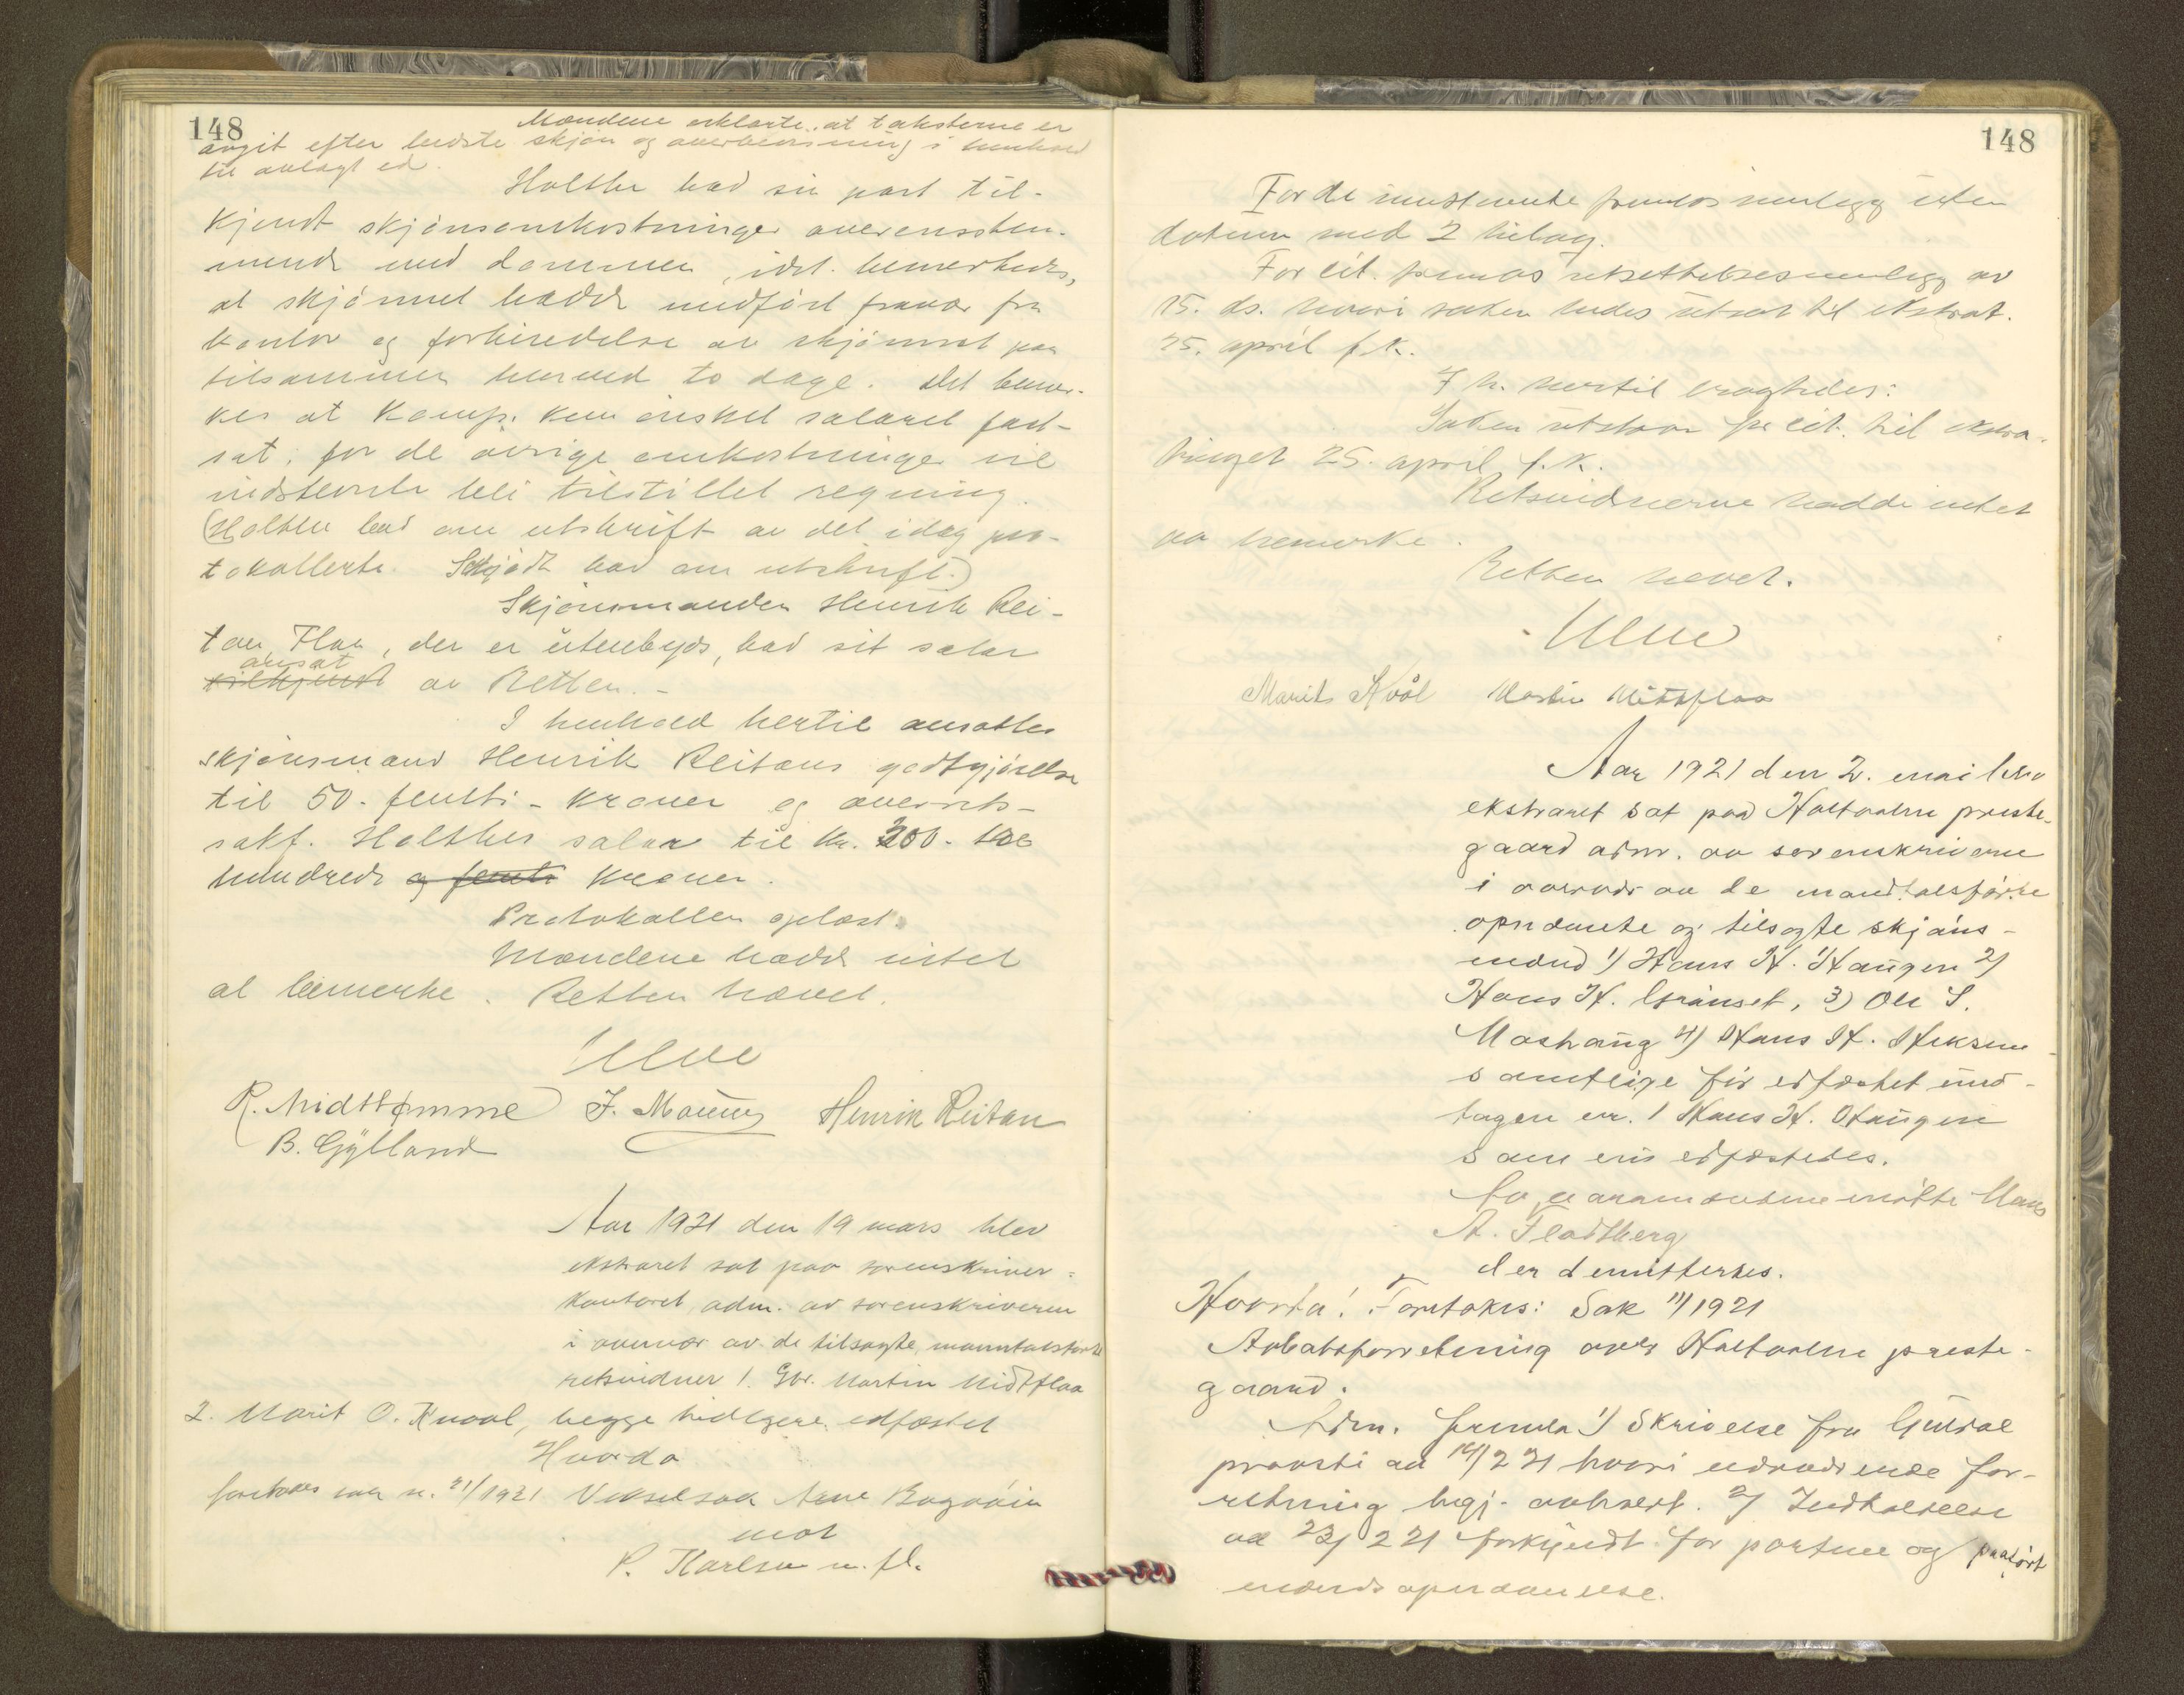 148
Mændene erklærte, at taksterne er
avgit efter bedste skjøn og overbevisning i henhold
til avlagt ed.
Holthe bad sin part til-
kjendt skjønsomkostninger overensstem-
mende med dommen, idet bemerkedes,
at skjønnet hadde medført fravær fra
kontor og forberedelse av skjønnet paa
tilsammen henved to dage. Det bemer-
kes at komp. kun ønsket salaret fast-
sat; for de øvrige omkostninger vil
indstevnte bli tilstillet regning.
(Holthe bad om utskrift av det idag pro-
tokollerte. Schjødt bad om utskrift.)
Skjønsmanden Henrik Rei-
tan, Flaa, der er utenbygds, bad sit salar
ansat
tilkjendt av Retten. -
I henhold hertil ansattes
skjønsmand Henrik Reitans godtgjørelse
til 50 - femti - kroner og overrets-
sakf. Holthes salar til kr. 200 - to
hundrede og femti kroner.
Protokollen oplæst.
Mændene hadde intet
at bemerke. Retten hævet.
R. Midttømme J. Moum Henrik Reitan
B. Gylland
Aar 1921 den 19 mars blev
ekstraret sat paa sorenskriver-
kontoret adm. av sorenskriveren
i overvær av de tilsagte manntalsførte
retsvidner 1. Gbr. Martin Midtflaa
2. Marit O. Kvaal, begge tidligere edfæstet
Hvorda
foretokes sak n. 21/1921 Vekselsak Arne Bogøien
mot
P. Karlsen m. fl.
148
For de indstevnte fremlos innlegg uten
datum med 2 bilag.
For cit. fremlos utsettelsesinnlegg av
15. ds. hvori saken bedes utsat til ekstrat.
25. april f.k.
I h. hertil eragtedes:
Saken utstaar for cit. til ekstra-
tinget 25. april f.k.
Retsvidnerne hadde intet
aa bemerke.
Retten hevet.
Marit Kvål Martin Midtflaa
Aar 1921 den 2. mai blev
ekstraret sat paa Holtaalen preste-
gaard adm. av sorenskriveren
i overvær av de mandtalsførte
opnævnte og tilsagte skjøns-
mænd 1) Hans H. Haugen 2)
Hans H. Grønset, 3) Ole S.
Moshaug 4) Hans H. Heksem
samtlige før edfæstet und-
tagen nr. 1 Hans H. Haugen
som nu edfæstedes.
Av varamændene møtte Hans
A. Flodtberg
der demitteres.
Hvorda! Foretokes: Sak 11/1921
Aabotsforretning over Holtaalen preste-
gaard.
Adm. fremla 1) Skrivelse fra Guldal
prosti av 14/2 21 hvori nærværende for-
retning begj. avholdt. 2) Indkaldelse
av 23/2 21 forkyndt for partene og paaført
mænds opnævnelse.